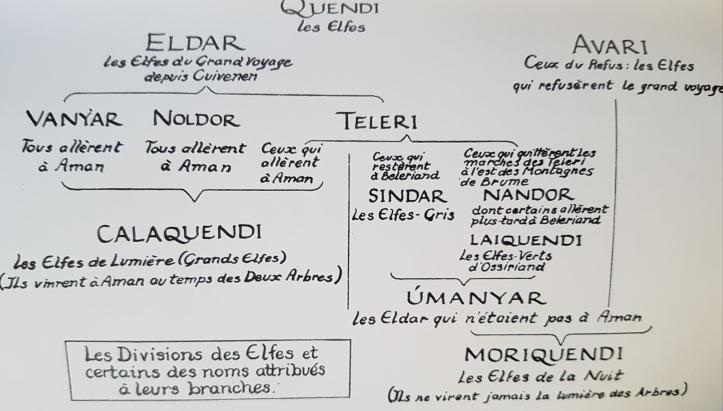 QUENDI
les Elfes
ELDAR
les Elfes du Grand Voyage
depuis Cuivenen
AVARI
Ceux du Refus: les Elfes
qui refusèrent le grand voyage
VANYAR
Tous allèrent
à Aman
NOLDOR
Tous allèrent
à Aman
TELERI
Ceux qui
allèrent
à Aman
Ceux qui
restèrent
à Beleriand
SINDAR
Les Elfes-Gris
Ceux qui quittèrent les
marches des Teleri
à l'est des Montagnes
de Brume
NANDOR
dont certains allèrent
plus tard à Beleriand
LAIQUENDI
Les Elfes-Verts
d'Ossiriand
CALAQUENDI
Les Elfes de Lumière (Grands Elfes)
(Ils vinrent à Aman au temps des Deux Arbres)
ÚMANYAR
les Eldar qui n'étaient pas à Aman
MORIQUENDI
Les Elfes de la Nuit
(Ils ne virent jamais la lumière des Arbres)
Les Divisions des Elfes et
certains des noms attribués
à leurs branches.